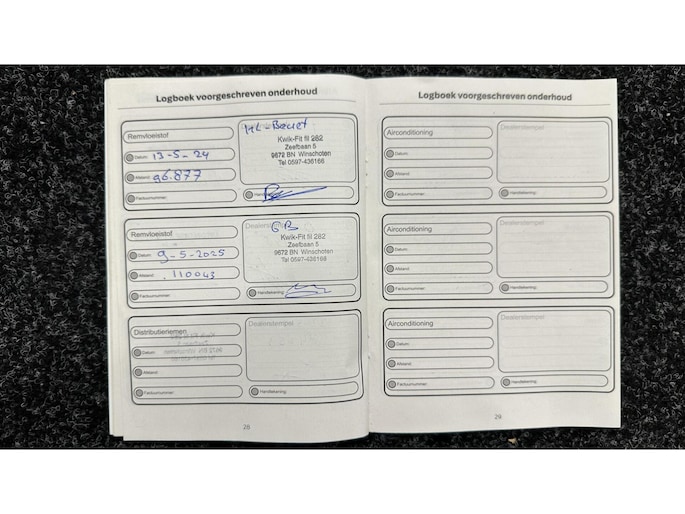 Logboek voorgeschreven onderhoud
Remvloeistof
Datum: 13-5-24
Afstand: 96.877
Factuurnummer:
Kwik-Fit fil 282
Zeefbaan 5
9672 BN Winschoten
Tel 0597-436166
Handtekening:
Remvloeistof
Datum: 9-5-2025
Afstand: 110043
Factuurnummer:
Dealerstempel
GB
Kwik-Fit fil 282
Zeefbaan 5
9672 BN Winschoten
Tel 0597-436166
Handtekening:
Distributieriemen
Datum:
Afstand:
Factuurnummer:
Dealerstempel
Handtekening:
28
Logboek voorgeschreven onderhoud
Airconditioning
Datum:
Afstand:
Factuurnummer:
Dealerstempel
Handtekening:
Airconditioning
Datum:
Afstand:
Factuurnummer:
Dealerstempel
Handtekening:
Airconditioning
Datum:
Afstand:
Factuurnummer:
Dealerstempel
Handtekening:
29